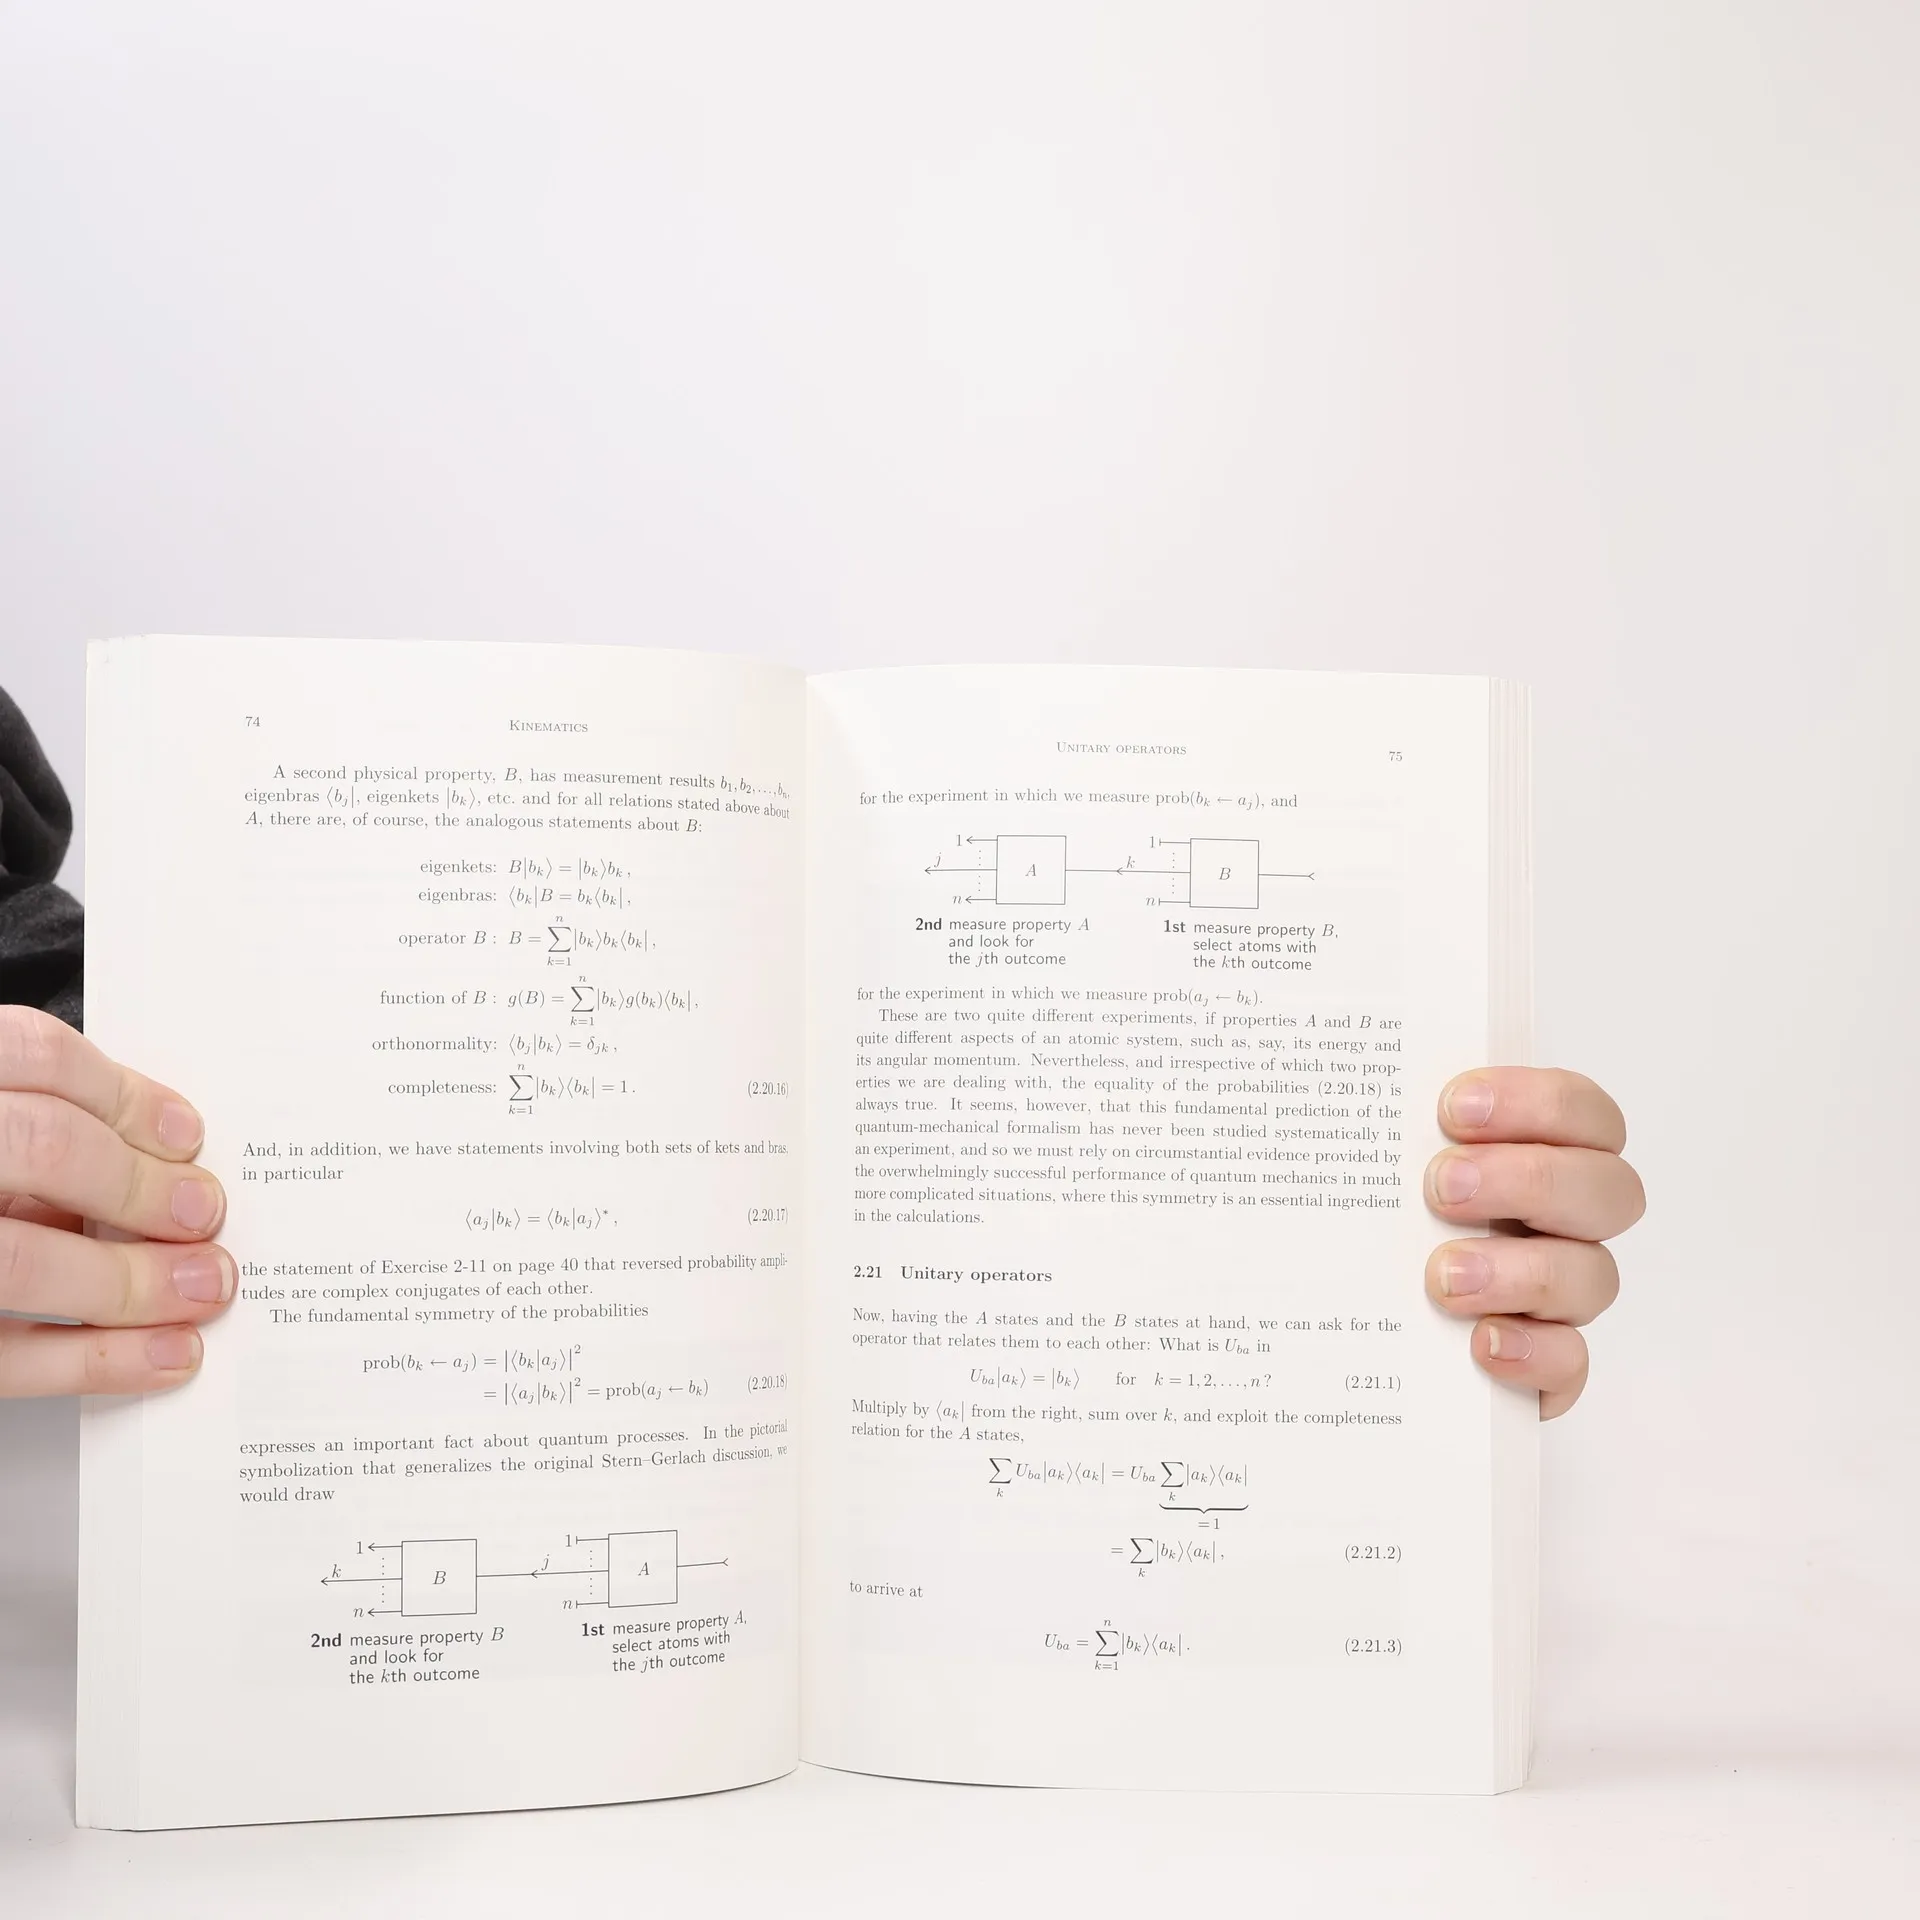 74
KINEMATICS
A second physical property, B, has measurement results b₁, b₂, …, bₙ,
eigenbras ⟨bⱼ|, eigenkets |bₖ⟩, etc. and for all relations stated above about
A, there are, of course, the analogous statements about B:
eigenkets: B|bₖ⟩ = |bₖ⟩bₖ ,
eigenbras: ⟨bₖ|B = bₖ⟨bₖ| ,
operator B : B = ∑ₖ₌₁ⁿ |bₖ⟩bₖ⟨bₖ| ,
function of B : g(B) = ∑ₖ₌₁ⁿ |bₖ⟩g(bₖ)⟨bₖ| ,
orthonormality: ⟨bⱼ|bₖ⟩ = δⱼₖ ,
completeness: ∑ₖ₌₁ⁿ |bₖ⟩⟨bₖ| = 1 . (2.20.16)
And, in addition, we have statements involving both sets of kets and bras,
in particular
⟨aⱼ|bₖ⟩ = ⟨bₖ|aⱼ⟩* , (2.20.17)
the statement of Exercise 2-11 on page 40 that reversed probability ampli-
tudes are complex conjugates of each other.
The fundamental symmetry of the probabilities
prob(bₖ ← aⱼ) = |⟨bₖ|aⱼ⟩|²
= |⟨aⱼ|bₖ⟩|² = prob(aⱼ ← bₖ) (2.20.18)
expresses an important fact about quantum processes. In the pictorial
symbolization that generalizes the original Stern–Gerlach discussion, we
would draw
1 1
k B j A
n n
2nd measure property B
and look for
the kth outcome
1st measure property A,
select atoms with
the jth outcome
UNITARY OPERATORS
75
for the experiment in which we measure prob(bₖ ← aⱼ), and
1 1
j A k B
n n
2nd measure property A
and look for
the jth outcome
1st measure property B,
select atoms with
the kth outcome
for the experiment in which we measure prob(aⱼ ← bₖ).
These are two quite different experiments, if properties A and B are
quite different aspects of an atomic system, such as, say, its energy and
its angular momentum. Nevertheless, and irrespective of which two prop-
erties we are dealing with, the equality of the probabilities (2.20.18) is
always true. It seems, however, that this fundamental prediction of the
quantum-mechanical formalism has never been studied systematically in
an experiment, and so we must rely on circumstantial evidence provided by
the overwhelmingly successful performance of quantum mechanics in much
more complicated situations, where this symmetry is an essential ingredient
in the calculations.
2.21 Unitary operators
Now, having the A states and the B states at hand, we can ask for the
operator that relates them to each other: What is U_ba in
U_ba|aₖ⟩ = |bₖ⟩ for k = 1, 2, …, n ? (2.21.1)
Multiply by ⟨aₖ| from the right, sum over k, and exploit the completeness
relation for the A states,
∑ₖ U_ba|aₖ⟩⟨aₖ| = U_ba ∑ₖ |aₖ⟩⟨aₖ|
= 1
= ∑ₖ |bₖ⟩⟨aₖ| , (2.21.2)
to arrive at
U_ba = ∑ₖ₌₁ⁿ |bₖ⟩⟨aₖ| . (2.21.3)